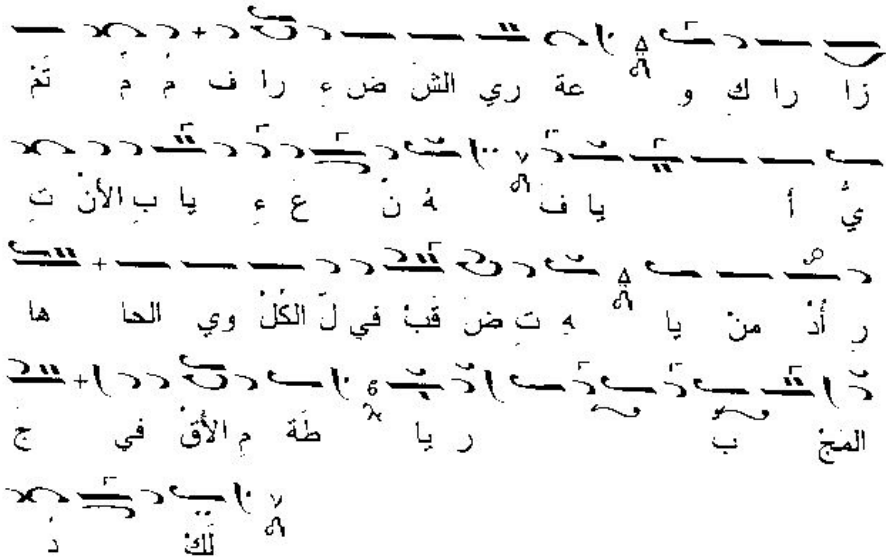 تَمْ مَ مَ ف را ءِ ضَ الشَ ري عة و كِ را زا
تِ الأنْ بِ يا ءِ عَ نْ هُ فَ يا أ يُّ
ها الحا وي الكُلْ لَ في قَبْ ضَ تِ هِ يا مَنْ أُدْ رِ
جَ في الأَقْ مِ طَة يا ر ب المَجْ
دُ لَكْ